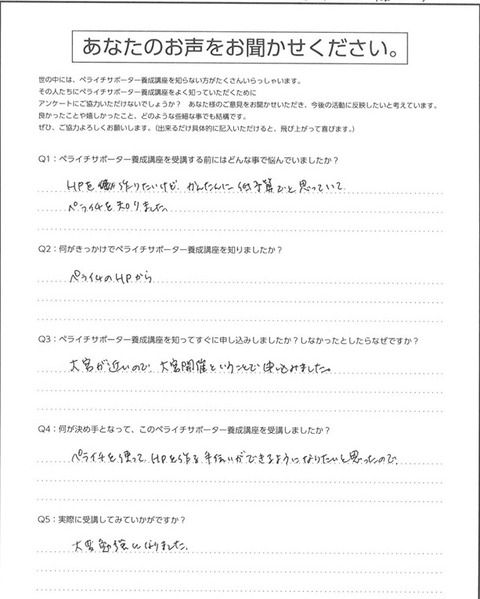 あなたのお声をお聞かせください。
世の中には、ペライチサポーター養成講座を知らない方がたくさんいらっしゃいます。
その人たちにペライチサポーター養成講座をよく知っていただくために
アンケートにご協力いただけないでしょうか？ あなた様のご意見をお聞かせいただき、今後の活動に反映したいと考えています。
良かったことや嬉しかったこと、どのような些細な事でも結構です。
ぜひ、ご協力よろしくお願いします。（出来るだけ具体的に記入いただけると、飛び上がって喜びます。）
Q1：ペライチサポーター養成講座を受講する前にはどんな事で悩んでいましたか？
HPを作りたいけど、かんたんに低予算でと思っていて、
ペライチを知りました。
Q2：何がきっかけでペライチサポーター養成講座を知りましたか？
ペライチのHPから
Q3：ペライチサポーター養成講座を知ってすぐに申し込みしましたか？しなかったとしたらなぜですか？
大宮が近いので、大宮開催ということで申し込みました。
Q4：何が決め手となって、このペライチサポーター養成講座を受講しましたか？
ペライチを使って、HPを作る手伝いができるようになりたいと思ったので、
Q5：実際に受講してみていかがですか？
大変勉強になりました。